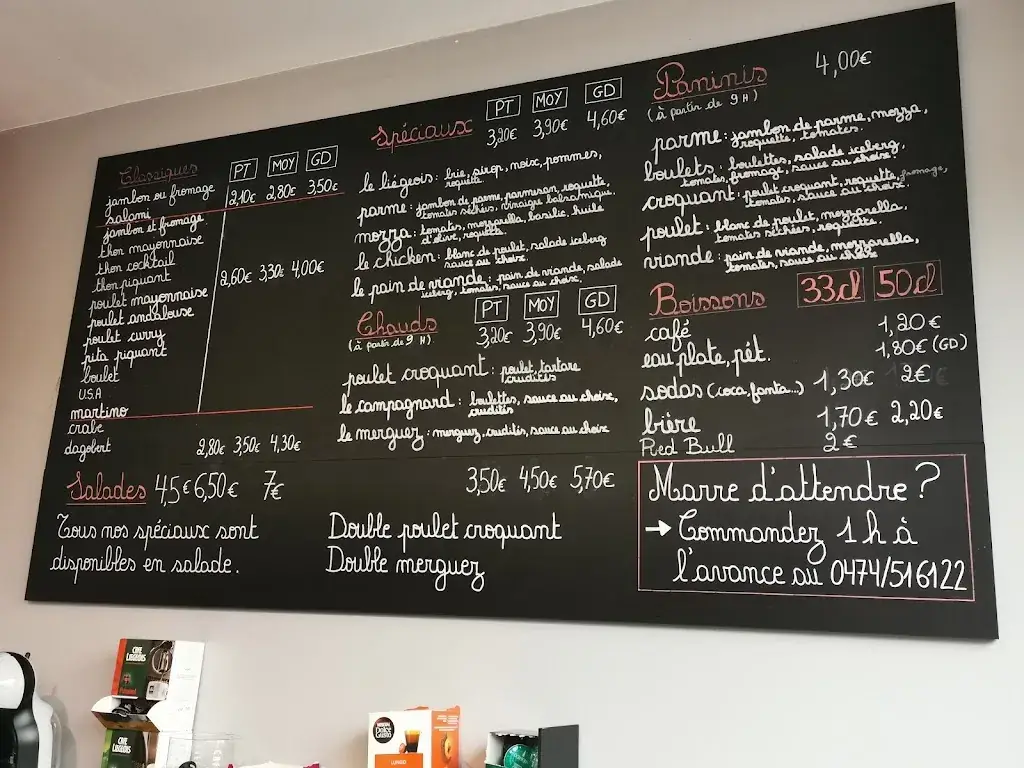 Classiques PT MOY GD
jambon ou fromage 2,10€ 2,80€ 3,50€
salami
jambon et fromage
thon mayonnaise
thon cocktail
thon piquant 2,60€ 3,30€ 4,00€
poulet mayonnaise
poulet andalouse
poulet curry
pita piquant
boulet
U.S.A
martino
crabe
dagobert 2,80€ 3,50€ 4,30€
Salades 4,5€ 6,50€ 7€
Tous nos spéciaux sont
disponibles en salade.
Spéciaux PT MOY GD
3,20€ 3,90€ 4,60€
le liégeois: brie, sirop, noix, pommes,
roquette.
parme: jambon de parme, parmesan, roquette,
tomates séchées, vinaigre balsamique.
mozza: tomates, mozzarella, basilic, huile
d'olive, roquette.
le chicken: blanc de poulet, salade iceberg
sauce au choix.
le pain de viande: pain de viande, salade
iceberg, tomates, sauce au choix.
Chauds PT MOY GD
(à partir de 9 H) 3,20€ 3,90€ 4,60€
poulet croquant: poulet, tartare
crudités
le campagnard: boulettes, sauce au choix,
crudités
le merguez: merguez, crudités, sauce au choix
3,50€ 4,50€ 5,70€
Double poulet croquant
Double merguez
Paninis 4,00€
(à partir de 9 H)
parme: jambon de parme, mozza,
roquette, tomates.
boulets: boulettes, salade iceberg,
tomates, fromage, sauce au choix.
croquant: poulet croquant, roquette, fromage,
tomates, sauce au choix.
poulet: blanc de poulet, mozzarella,
tomates séchées, roquette.
viande: pain de viande, mozzarella,
tomates, sauce au choix
Boissons 33cl 50cl
café 1,20€
eau plate, pét. 1,80€ (GD)
sodas (coca, fanta...) 1,30€ 2€
bière 1,70€ 2,20€
Red Bull 2€
Marre d'attendre ?
→ Commandez 1h à
l'avance au 0474/516122
CAFÉ LIÉGEOIS
CAFÉ LIÉGEOIS
NESCAFÉ
Dolce Gusto
LUNGO